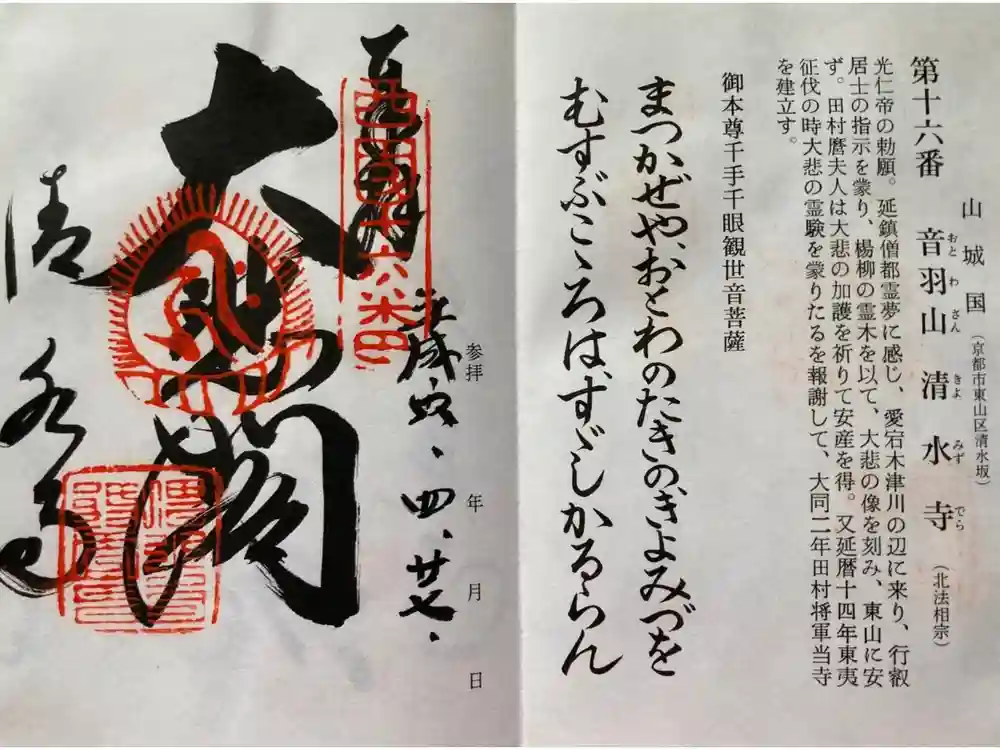 山城国（京都市東山区清水坂）
第十六番 音羽山 清水寺（北法相宗）
おとわさん きよみずでら
光仁帝の勅願。延鎮僧都霊夢に感じ、愛宕木津川の辺に来り、行叡
居士の指示を蒙り、楊柳の霊木を以て、大悲の像を刻み、東山に安
ず。田村麿夫人は大悲の加護を祈りて安産を得。又延暦十四年東夷
征伐の時大悲の霊験を蒙りたるを報謝して、大同二年田村将軍当寺
を建立す。
御本尊千手千眼観世音菩薩
まつかぜや、おとわのたきのきよみづを
むすぶこゝろは、すゞしかるらん
参拝 年 月 日
西国十六番
大悲閣
清水寺